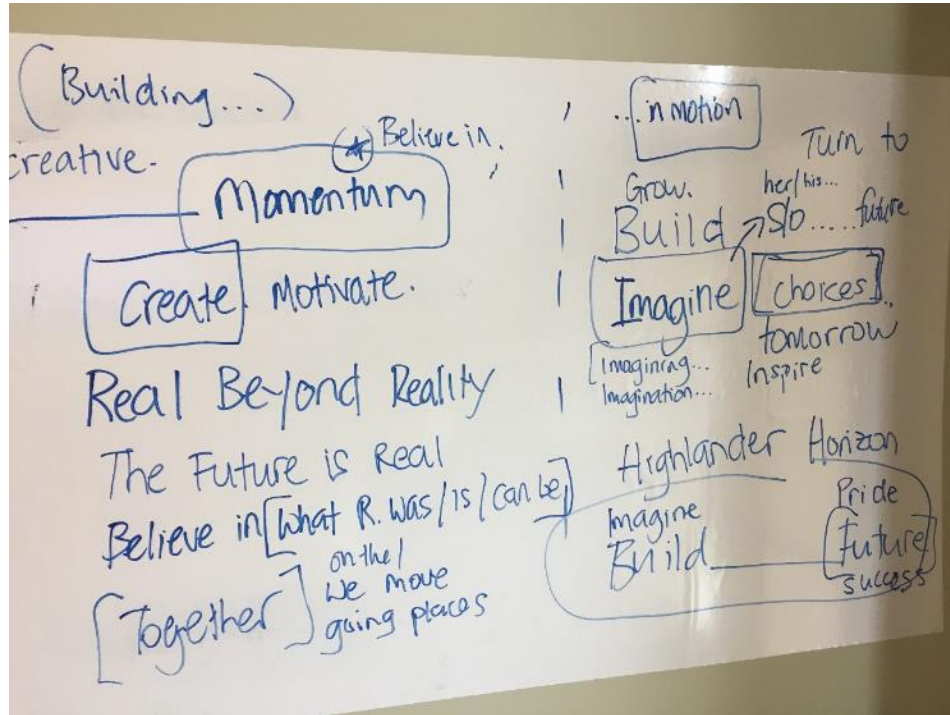 (Building...)
creative.
★ Believe in.
Momentum
Create Motivate.
Real Beyond Reality
The Future is Real
Believe in [What R. was/is/can be]
[Together] on the/
We move
going places
...in motion
Turn to
Grow.
her/his...
Build
S/o.....future
Imagine [choices]...
tomorrow
[Imagining...
Inspire
Imagination...
Highlander Horizon
Pride
Imagine
Build______[Future]
success